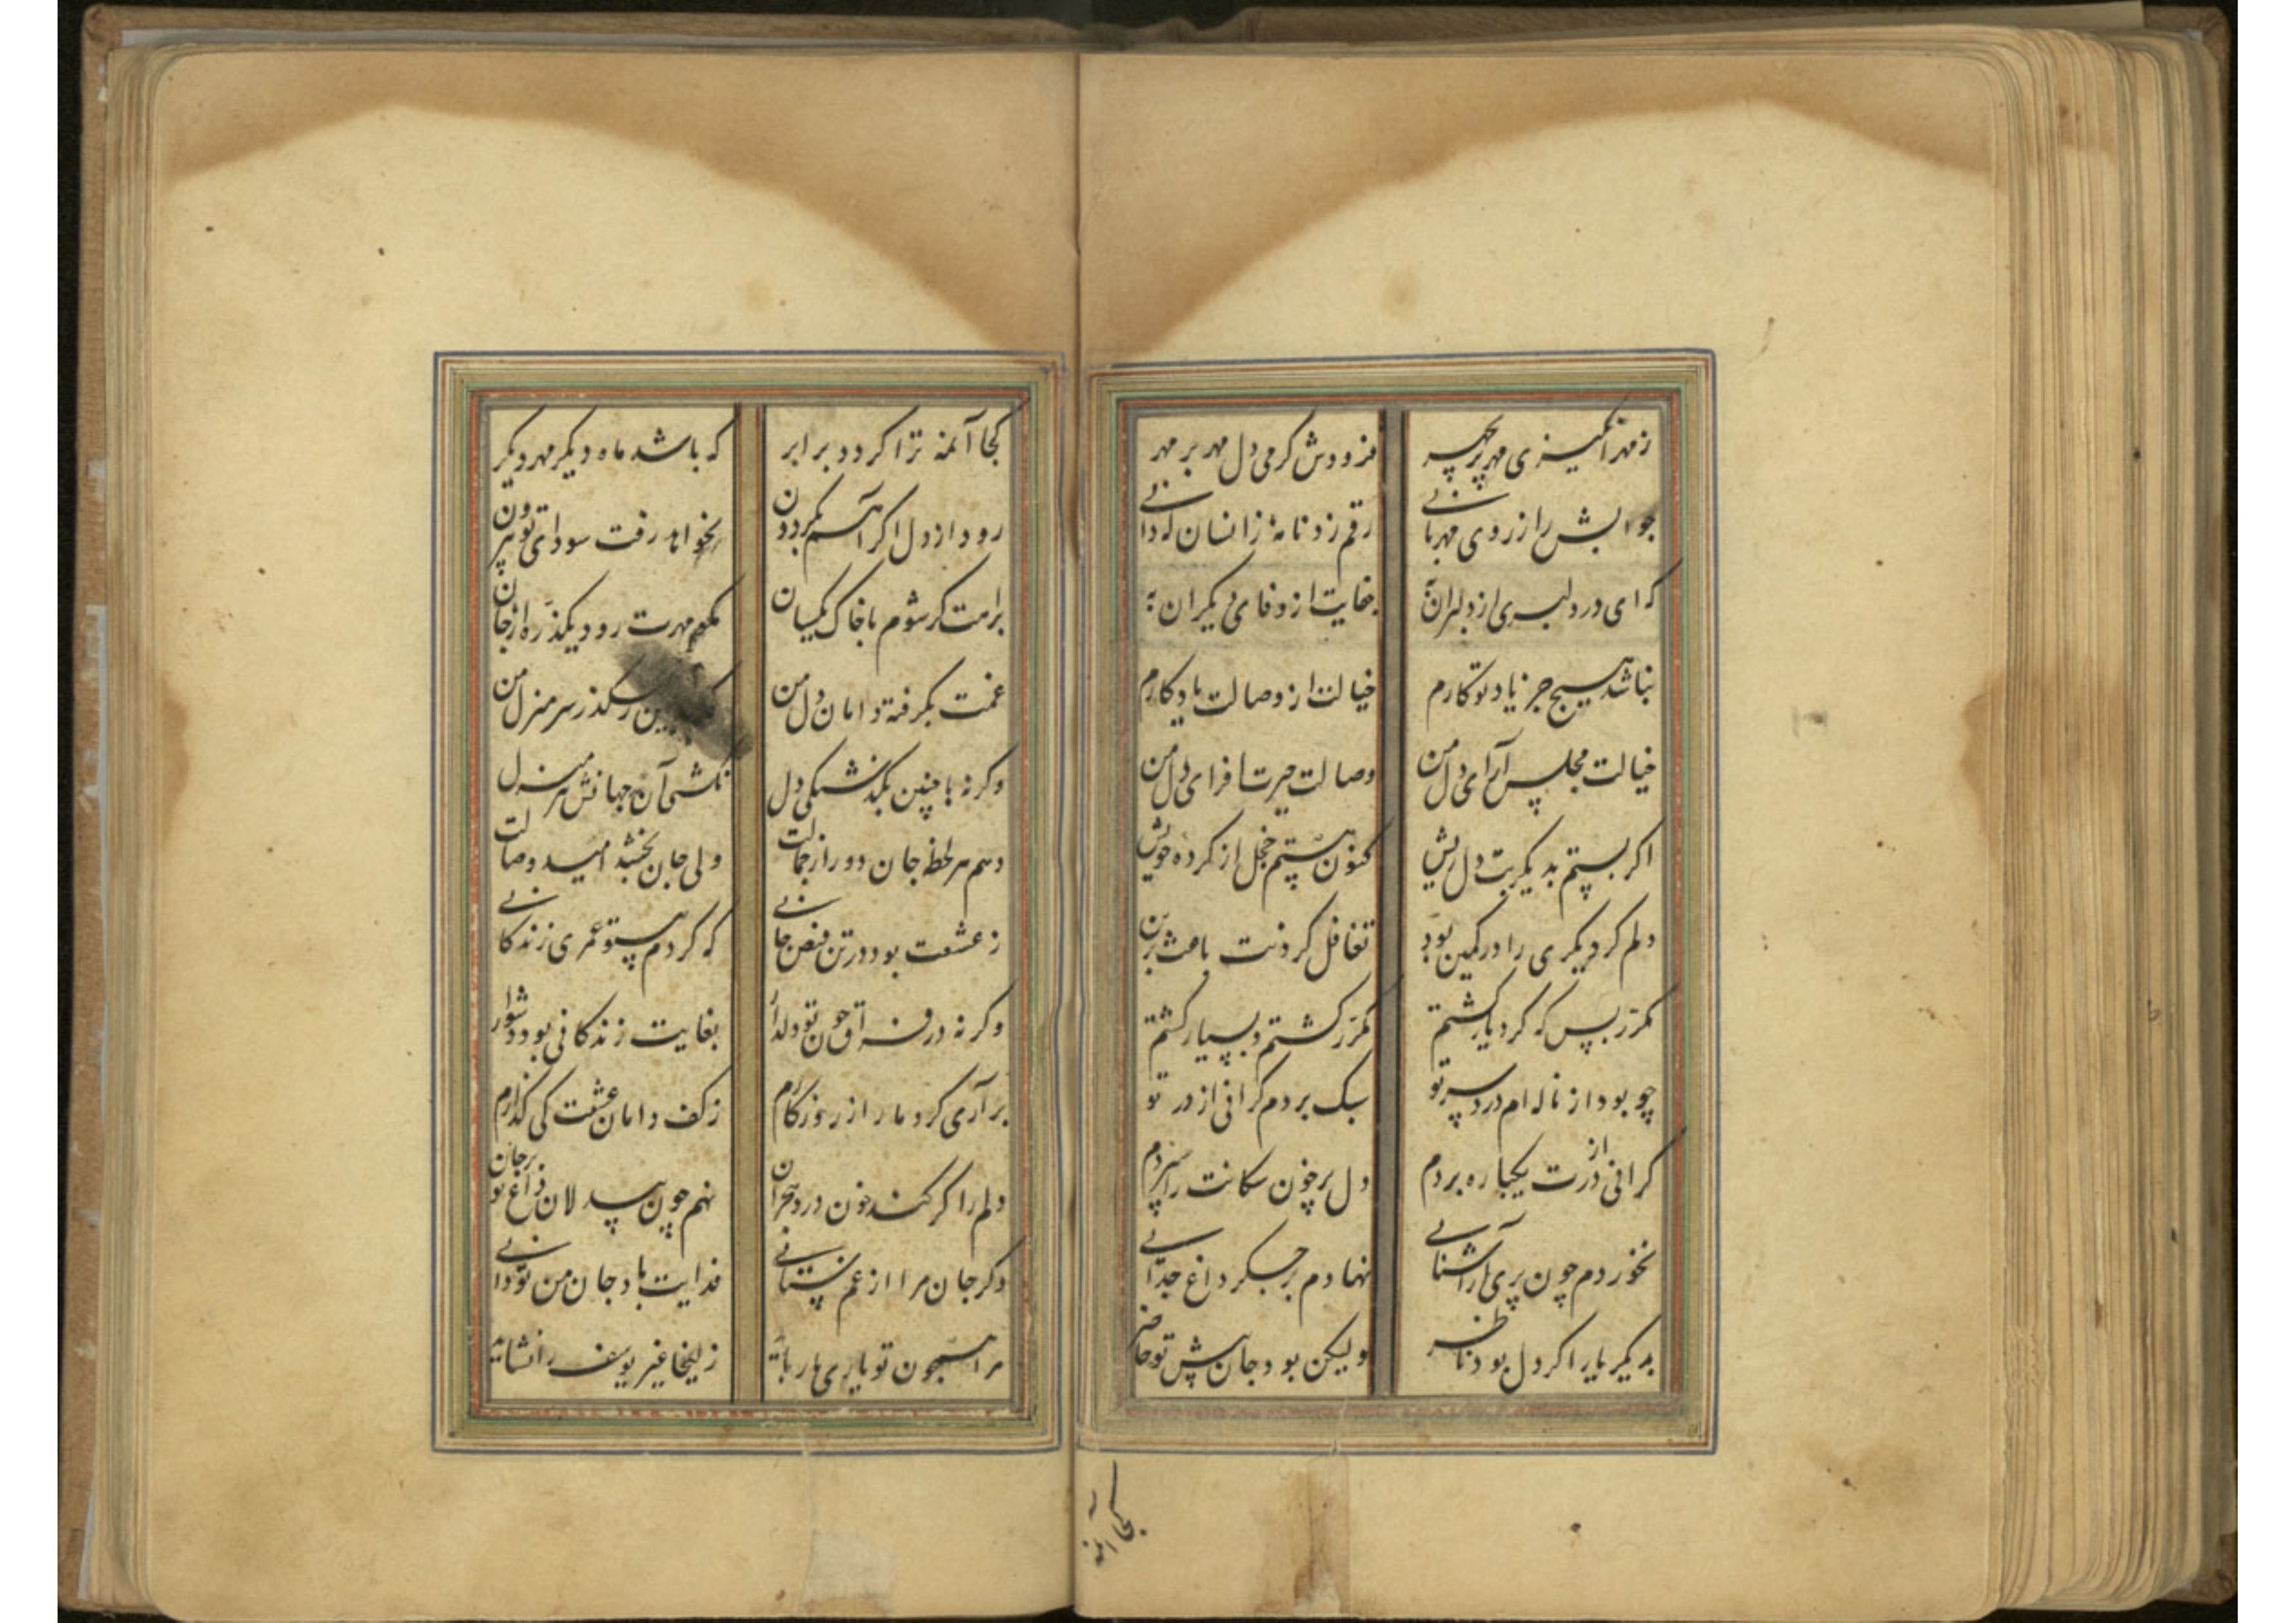 ز مهرانگیزی مهر پریچهر فزودش گرمی دل مهر بر مهر
جوابش را ز روی مهربانی رقم زد نامهٔ زانسان که دانی
که ای در دلبری از دلبران به جفایت از وفای دیگران به
نباشد هیچ جز یاد تو کارم خیالت از وصالت یادگارم
خیالت مجلس آرای دل من وصالت حیرت افزای دل من
اگر بستم بدیگر بت دل ریش کنون هستم خجل از کرده خویش
دلم کر دیگری را در کمین بود تغافل کردنت باعث برین بود
مکرر بس که گرد یار گشتم مکرر گشتم و بسیار گشتم
چو بود از ناله‌ام درد سر تو سبک بردم گرانی از در تو
گرانی از درت یکباره بردم دل پرخون سکانت را سپردم
نخوردم چون بری از آشنایی نهادم بر جگر داغ جدایی
بدیگر یار اگر دل بود ناظر ولیکن بود جان پیش تو حاضر
کجا آئمه
کجا آئمه ترا گردد برابر که باشد ماه دیگر مهر دیگر
رود از دل اگر آهم بگردون نخواهد رفت سودای تو بیرون
براهت گر شوم با خاک یکسان مگو مهرت رود یکذره از جان
غمت بگرفته دامان دل من رهگذر سر منزل من
وگرنه با چنین بگذشتگی دل نگشتی آن جهانش منزل
دهم هر لحظه جان دور از جمالت ولی جان بخشد امید وصالت
ز عشقت بود در تن فیض جانی که کردم بیتو عمری زندگانی
وگرنه در فراق چون تو دلدار بغایت زندگانی بود دشوار
بر آری گر دمار از روزگارم ز کف دامان عشقت کی گذارم
دلم را گر کند خون درد هجران نهم چون بیدلان داغ تو بر جان
وگر جان مرا از غم ستانی فدایت باد جان من تو دانی
مرا همچون تو یاری می‌رباید زلیخا غیر یوسف را نشاید